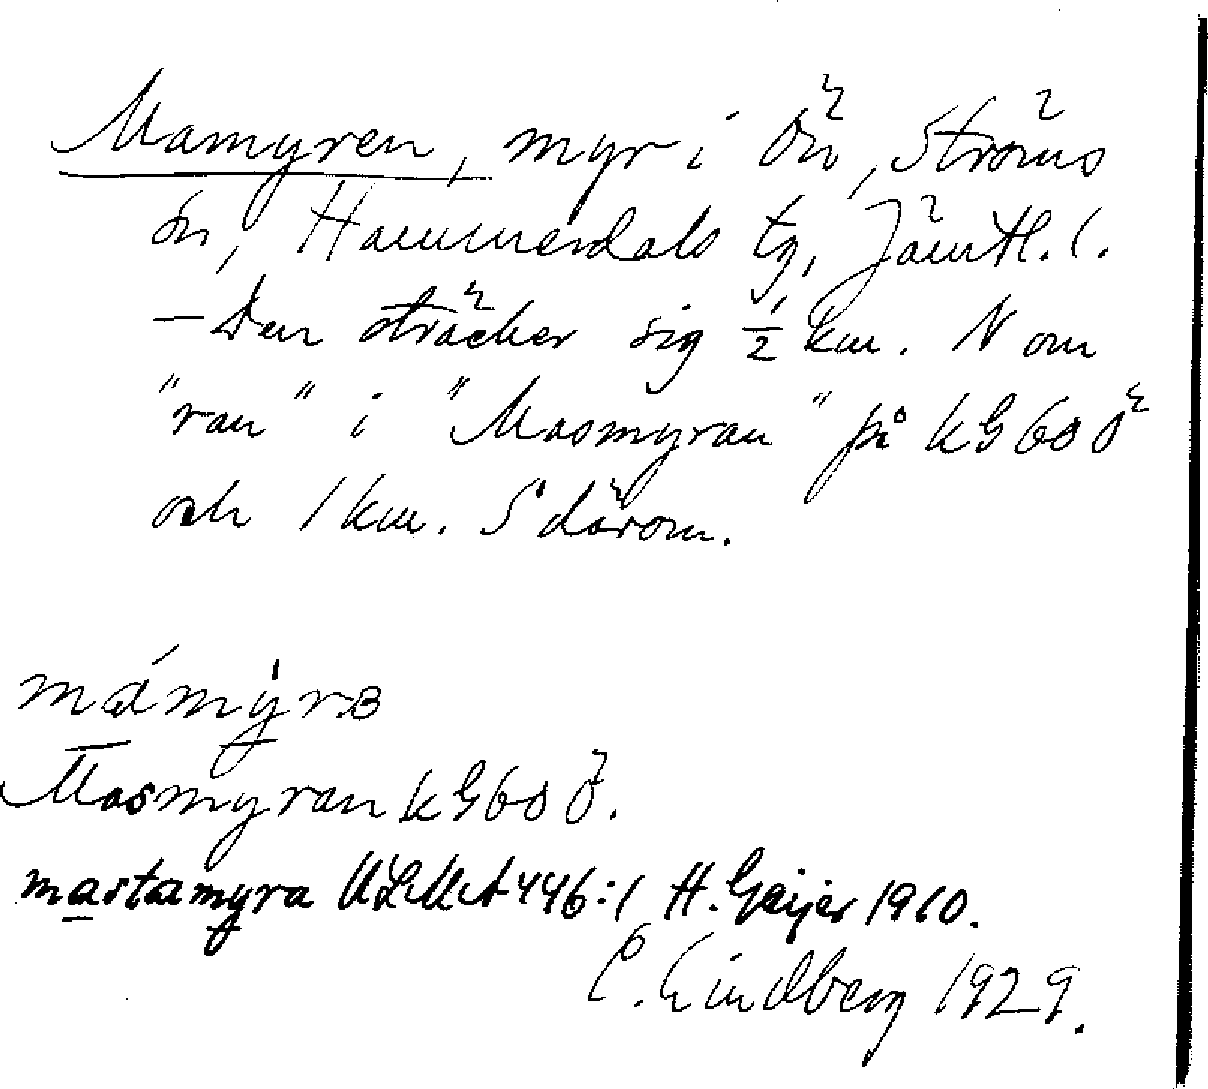 Mamyren, myr i Ön, Ströms
sn, Hammerdals tg, Jämtl. l.
— Den sträcker sig ½ km. N om
"ran" i "Masmyran" på kG 60 Ö
och 1 km. S därom.
mámy̱rɐ
Masmyran kG 60 Ö.
mastamyra ULMA 446:1 H. Geijer 1910.
C. Lindberg 1929.